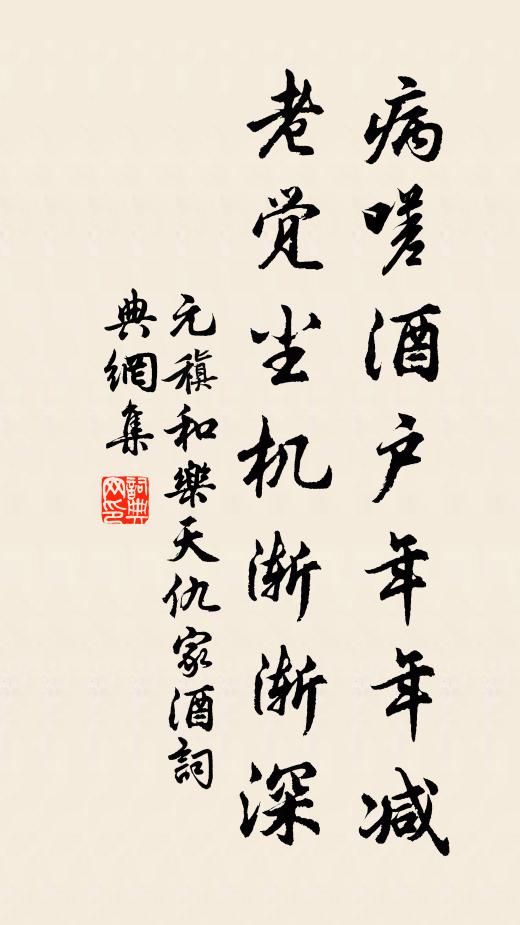 病嗟酒户年年减
老觉尘机渐渐深
元稹和樂天仇家酒詞
典網集
詞典網印